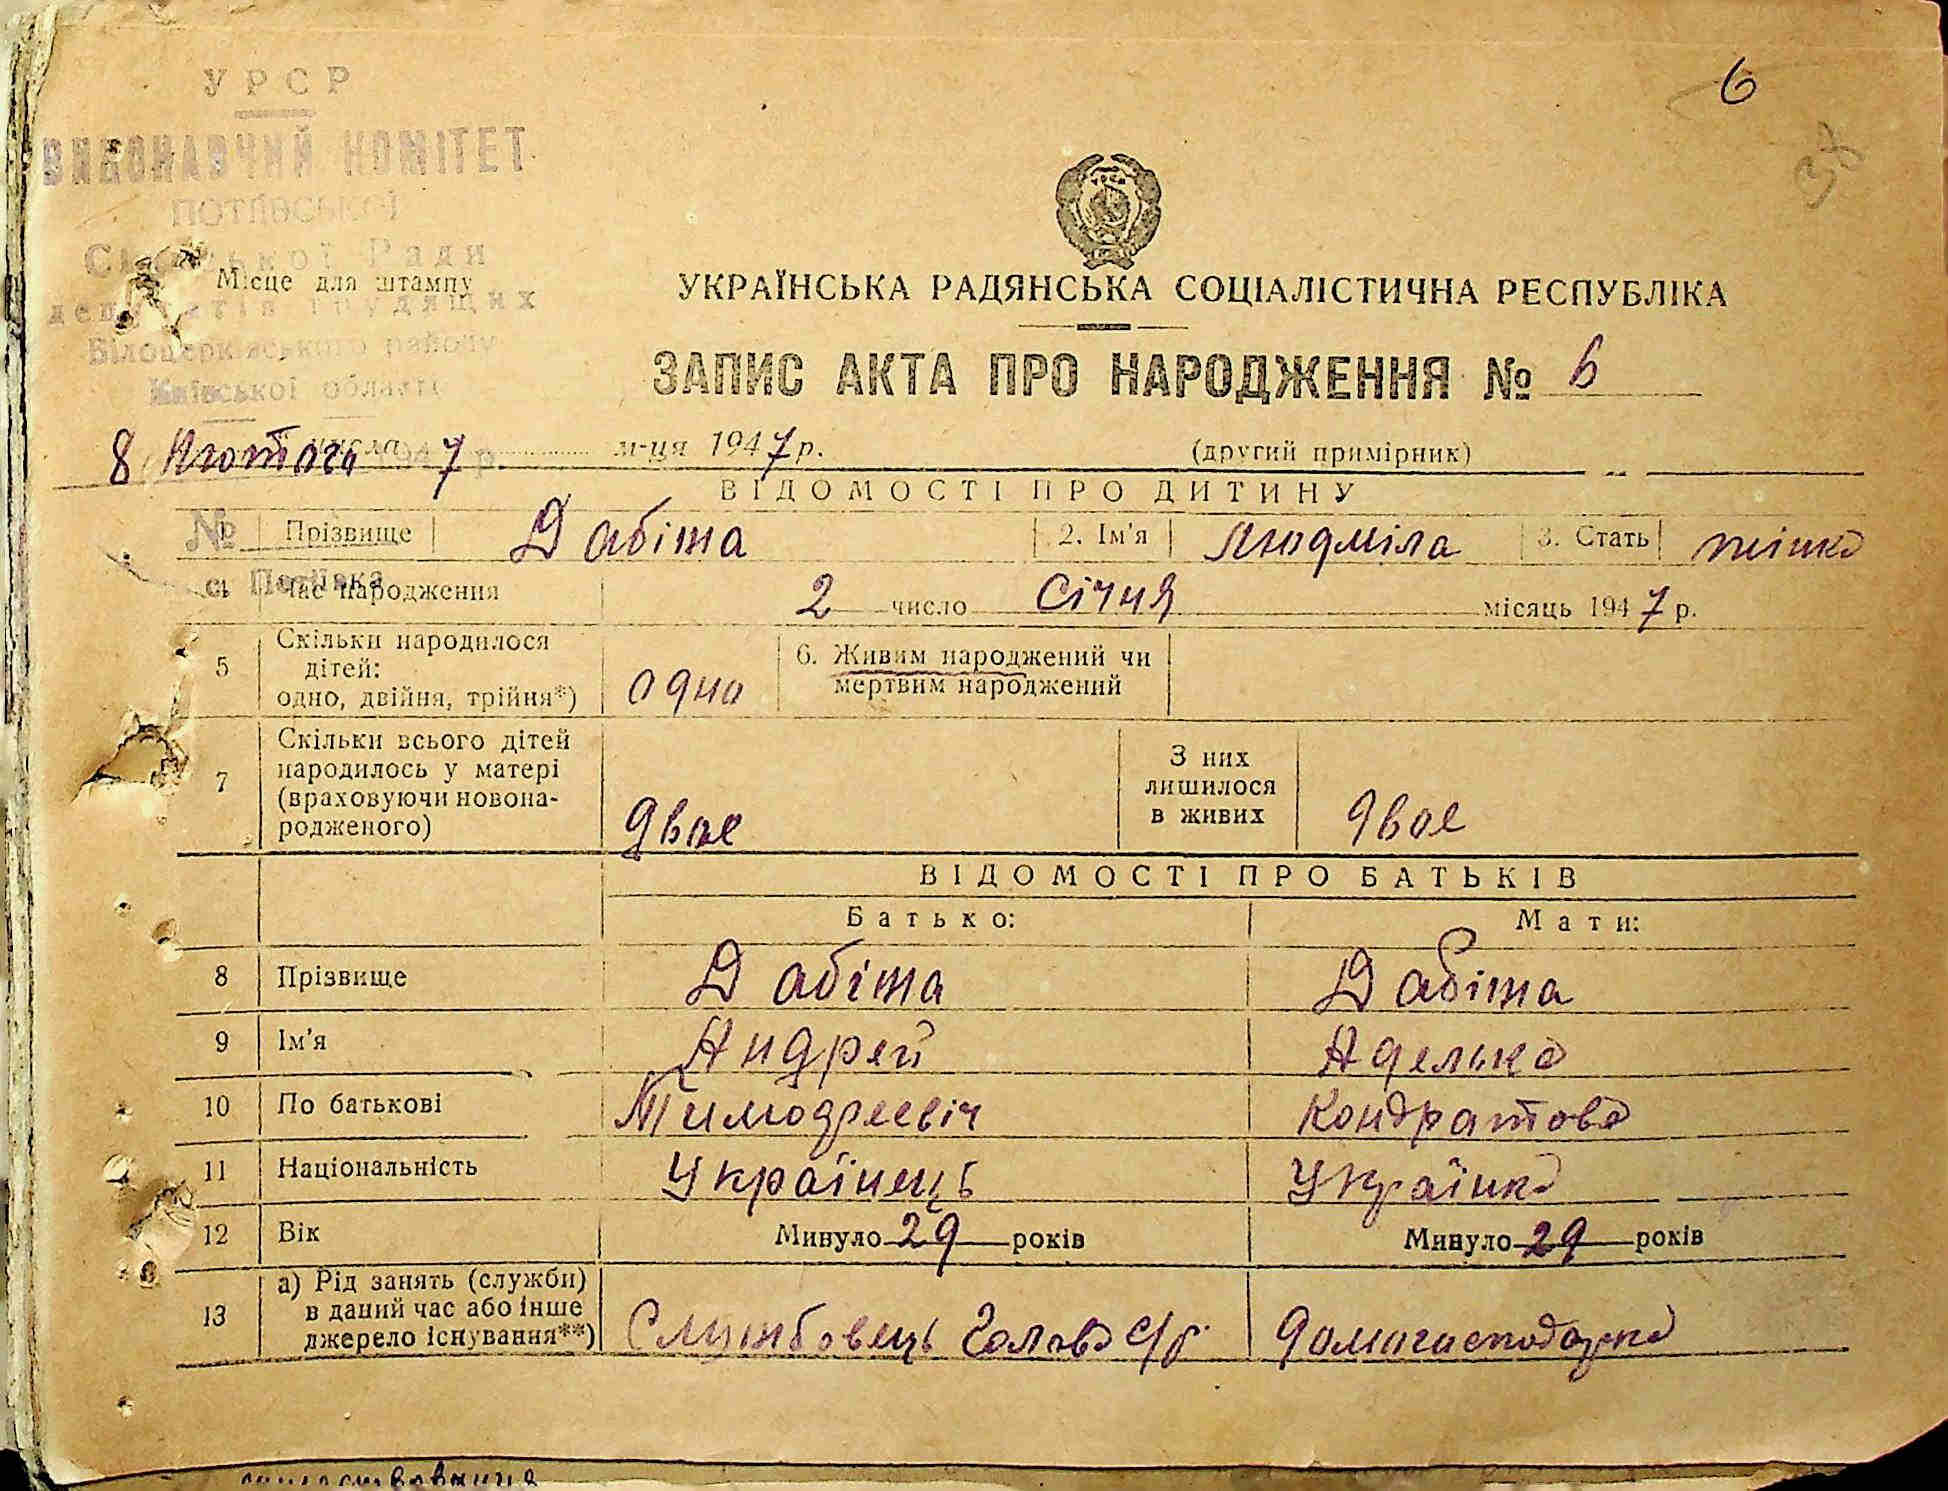 6
38
УРСР
ВИКОНАВЧИЙ КОМІТЕТ
ПОТІЇВСЬКОЇ
Сільської Ради
депутатів трудящих
Білоцерківського району
Київської області
Місце для штампу
УКРАЇНСЬКА РАДЯНСЬКА СОЦІАЛІСТИЧНА РЕСПУБЛІКА
ЗАПИС АКТА ПРО НАРОДЖЕННЯ № 6
8 Лютого числа 1947 р. м-ця 1947 р. (другий примірник)
ВІДОМОСТІ ПРО ДИТИНУ
№ Прізвище Дабіта 2. Ім'я Людміла 3. Стать жінка
с. Потіївка
4 Час народження 2 число Січня місяць 1947 р.
5 Скільки народилося дітей: одно, двійня, трійня*) одна 6. Живим народжений чи мертвим народжений
7 Скільки всього дітей народилось у матері (враховуючи новона-родженого) двое З них лишилося в живих двое
ВІДОМОСТІ ПРО БАТЬКІВ
Батько: Мати:
8 Прізвище Дабіта Дабіта
9 Ім'я Андрей Аделька
10 По батькові Тимофреевіч Кондратова
11 Національність Українець Українка
12 Вік Минуло 29 років Минуло 29 років
13 а) Рід занять (служби) в даний час або інше джерело існування**) Службовець Голова с/р. домогасподарка